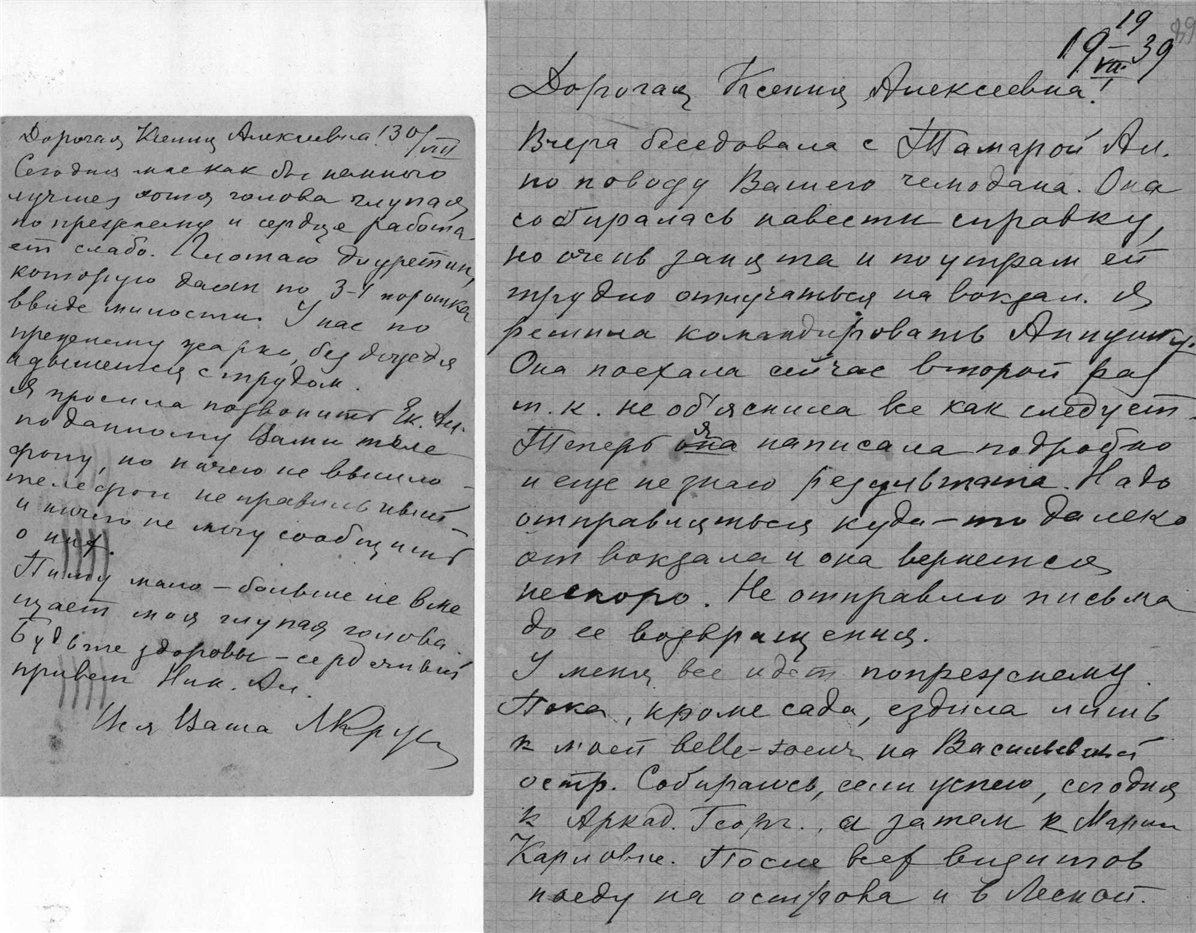 Дорогая Ксения Алексеевна! 30/VIII
Сегодня мне как бы немного
лучше, хотя голова глупая
по прежнему и сердце работа-
ет слабо. Глотаю диуретин,
которую дают по 3-4 порошка
ввиде милости. У нас по
прежнему жарко, без дождя
и дышется с трудом.
Я просила позвонить Ек. Ан.
по данному Вами теле
фону, но ничего не вышло –
телефон не правильный –
и ничего не могу сообщить
о них.
Пишу мало – больше не вме
щает моя глупая голова.
Будьте здоровы – сердечный
привет Ник. Ал.
Ваша
19 19/VII 39
Дорогая Ксения Алексеевна!
Вчера беседовала с Тамарой Ал.
по поводу Вашего чемодана. Она
собиралась навести справку,
но очень занята и по утрам ей
трудно отлучаться на вокзал. Я
решила командировать Аннушку.
Она поехала сейчас второй раз
т. к. не об'яснила все как следует.
Теперь она я написала подробно
и еще не знаю результата. Надо
отправляться куда-то далеко
от вокзала и она вернется
нескоро. Не отправлю письма
до ее возвращения.
У меня все идет попрежнему.
Пока, кроме сада, ездила лишь
к моей belle-soeur на Васильевский
остр. Собираюсь, если успею, сегодня
к Аркад. Георг., а затем к Марии
Карловне. После всех визитов
поеду на острова и в Лесной.